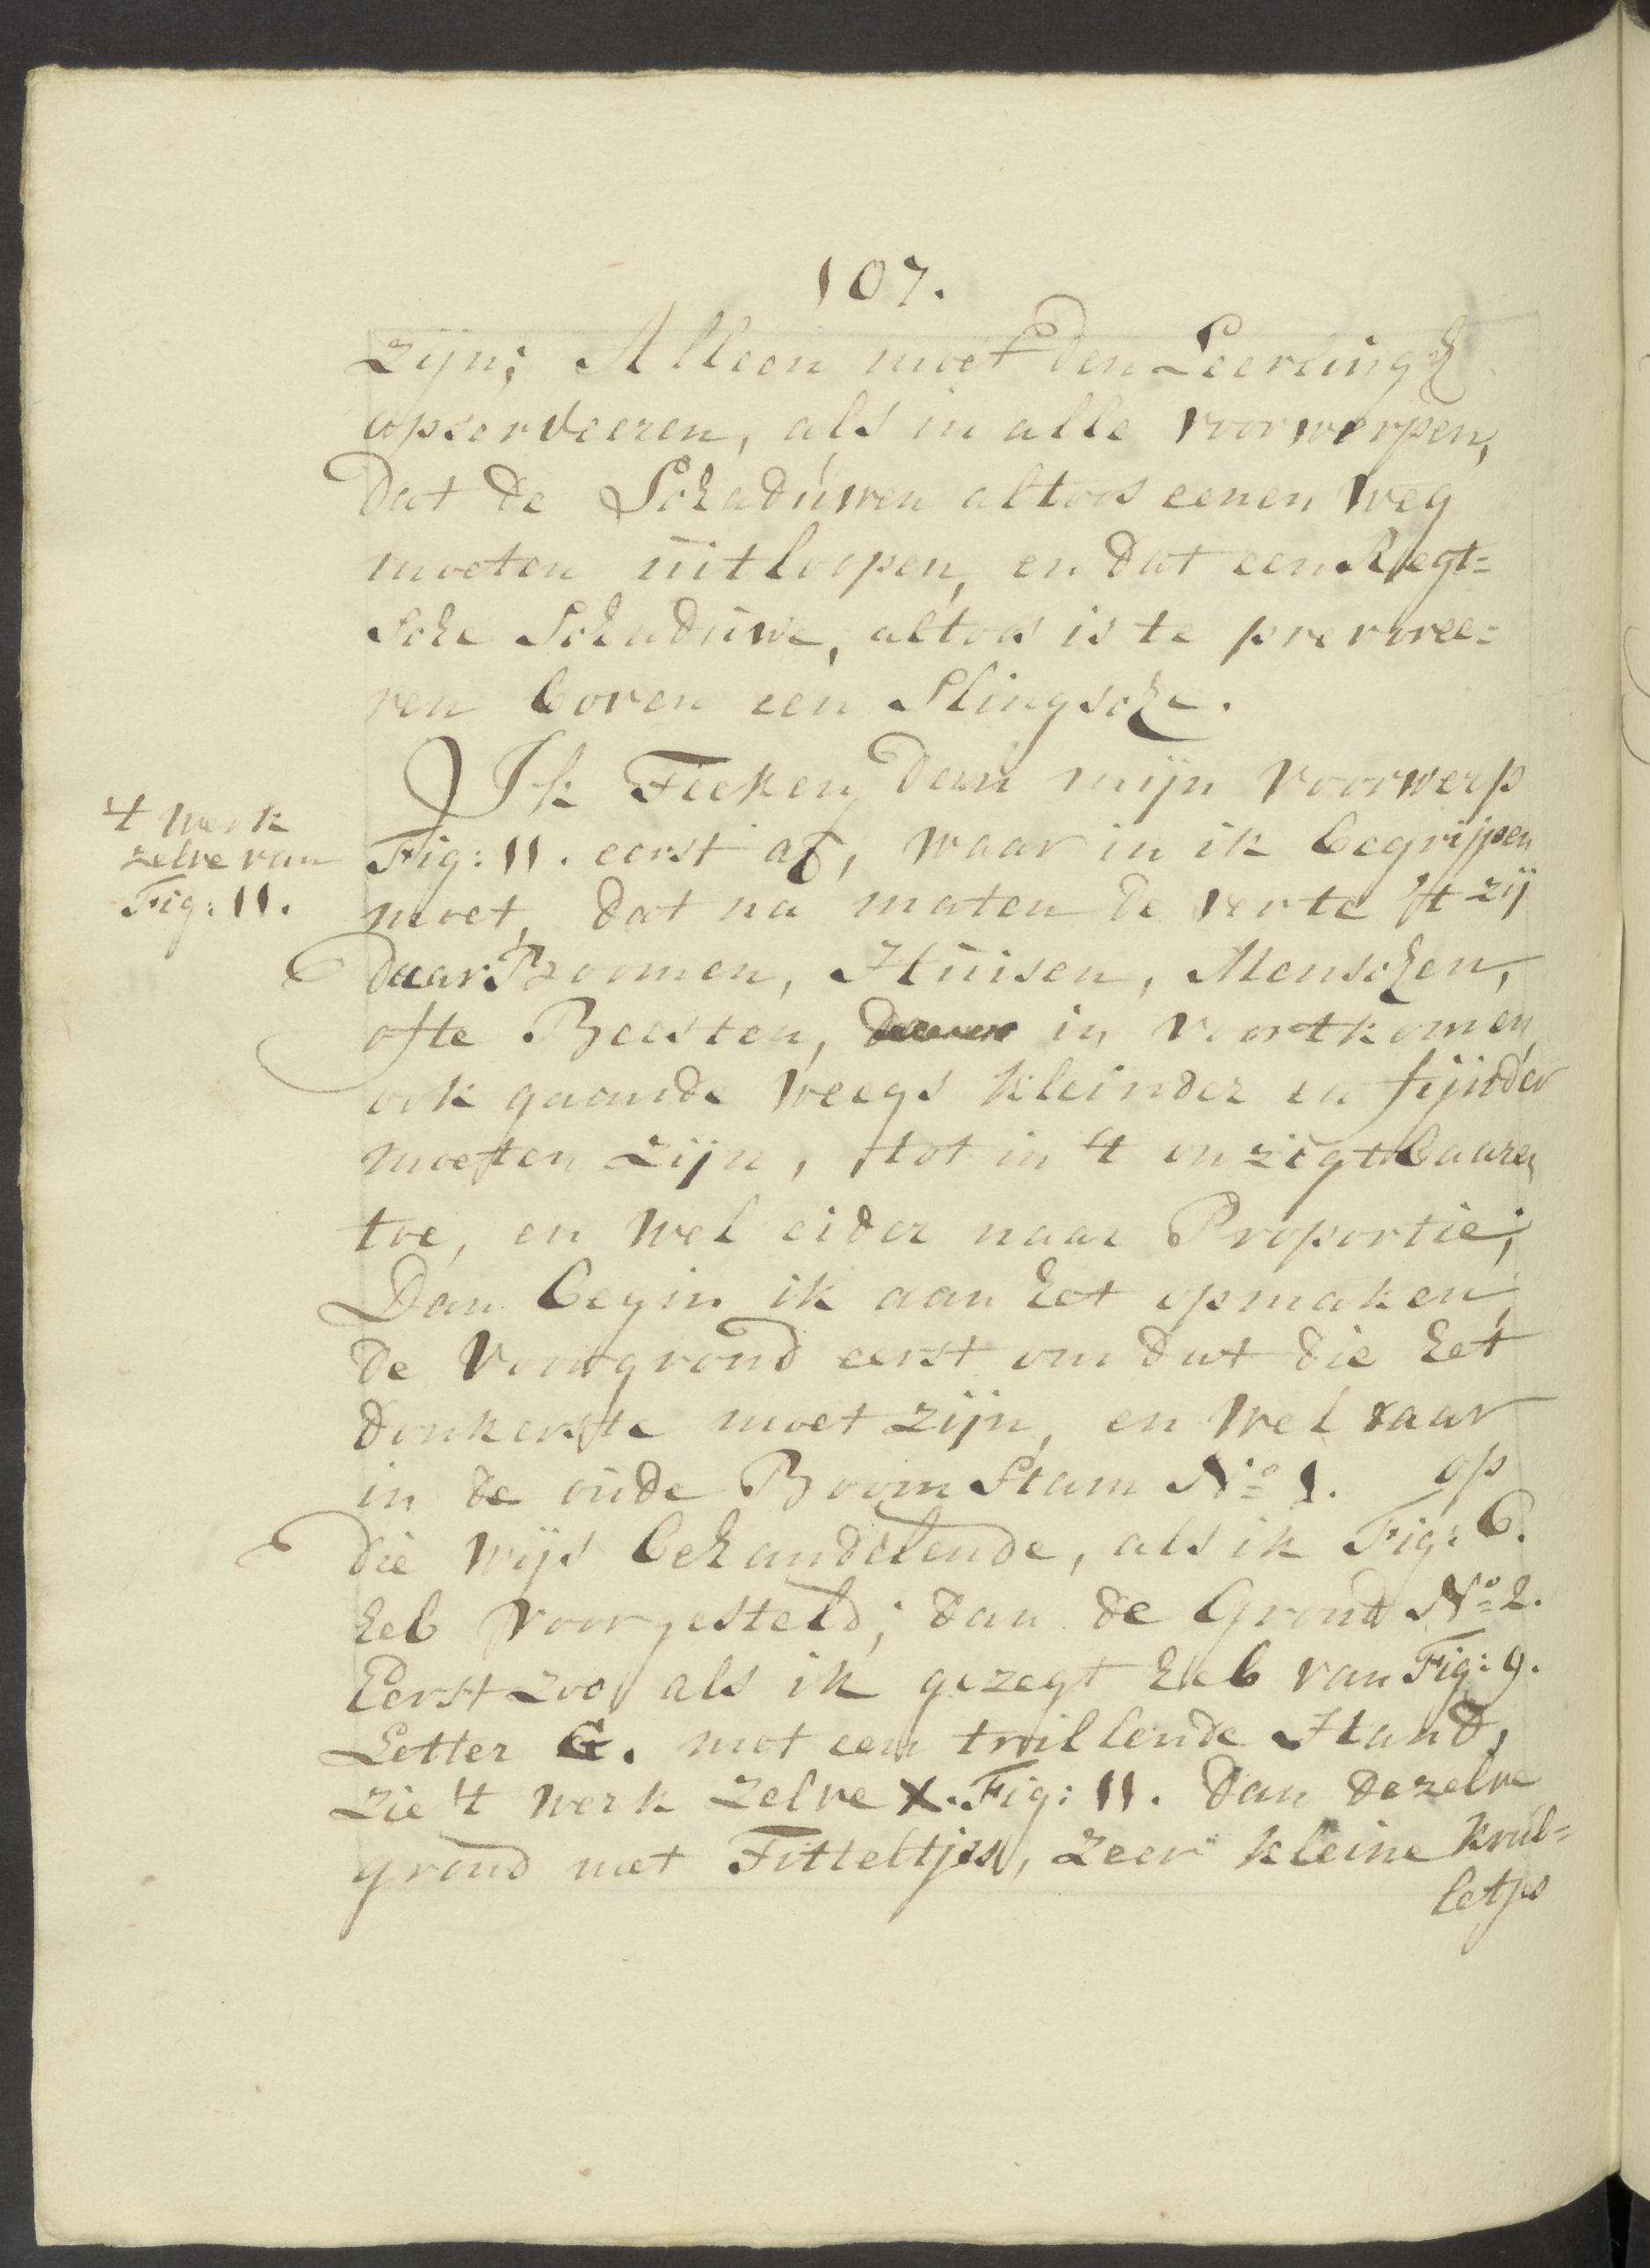 107.
zijn; Alleen moet den Leerling
opserveeren, als in alle voorwerpen,
dat de Schaduwen altoos eenen weg
moeten uitloopen, en dat een Regt=
sche Schaduwe, altoos is te prevree=
ren boven een Slingsche.
Ik Teeken dan mijn voorwerp
't werk
zelve van
Fig: 11.
Fig: 11. eerst af, waar in ik begrijpen
moet, dat na maten de verte 't zij
daar Boomen, Huisen, Menschen,
ofte Beesten, in voortkomen,
ook gaande weegs kleinder en fijnder
moeten zijn, tot in 't onzigtbaare
toe, en wel eider naar Proportie;
Dan begin ik aan het opmaken,
de voorgrond eerst om dat die het
donkerste moet zijn, en wel daar
in de oude Boom Stam No 1. op
die wijs behandelende, als ik Fig: 6.
heb voorgesteld; dan de Grond No 2.
Eerst zoo als ik gezegt heb van Fig: 9.
Letter G. met een trillende Hand,
zie 't werk zelve X. Fig: 11. dan dezelve
grond met Titteltjes, zeer kleine krul=
letjes